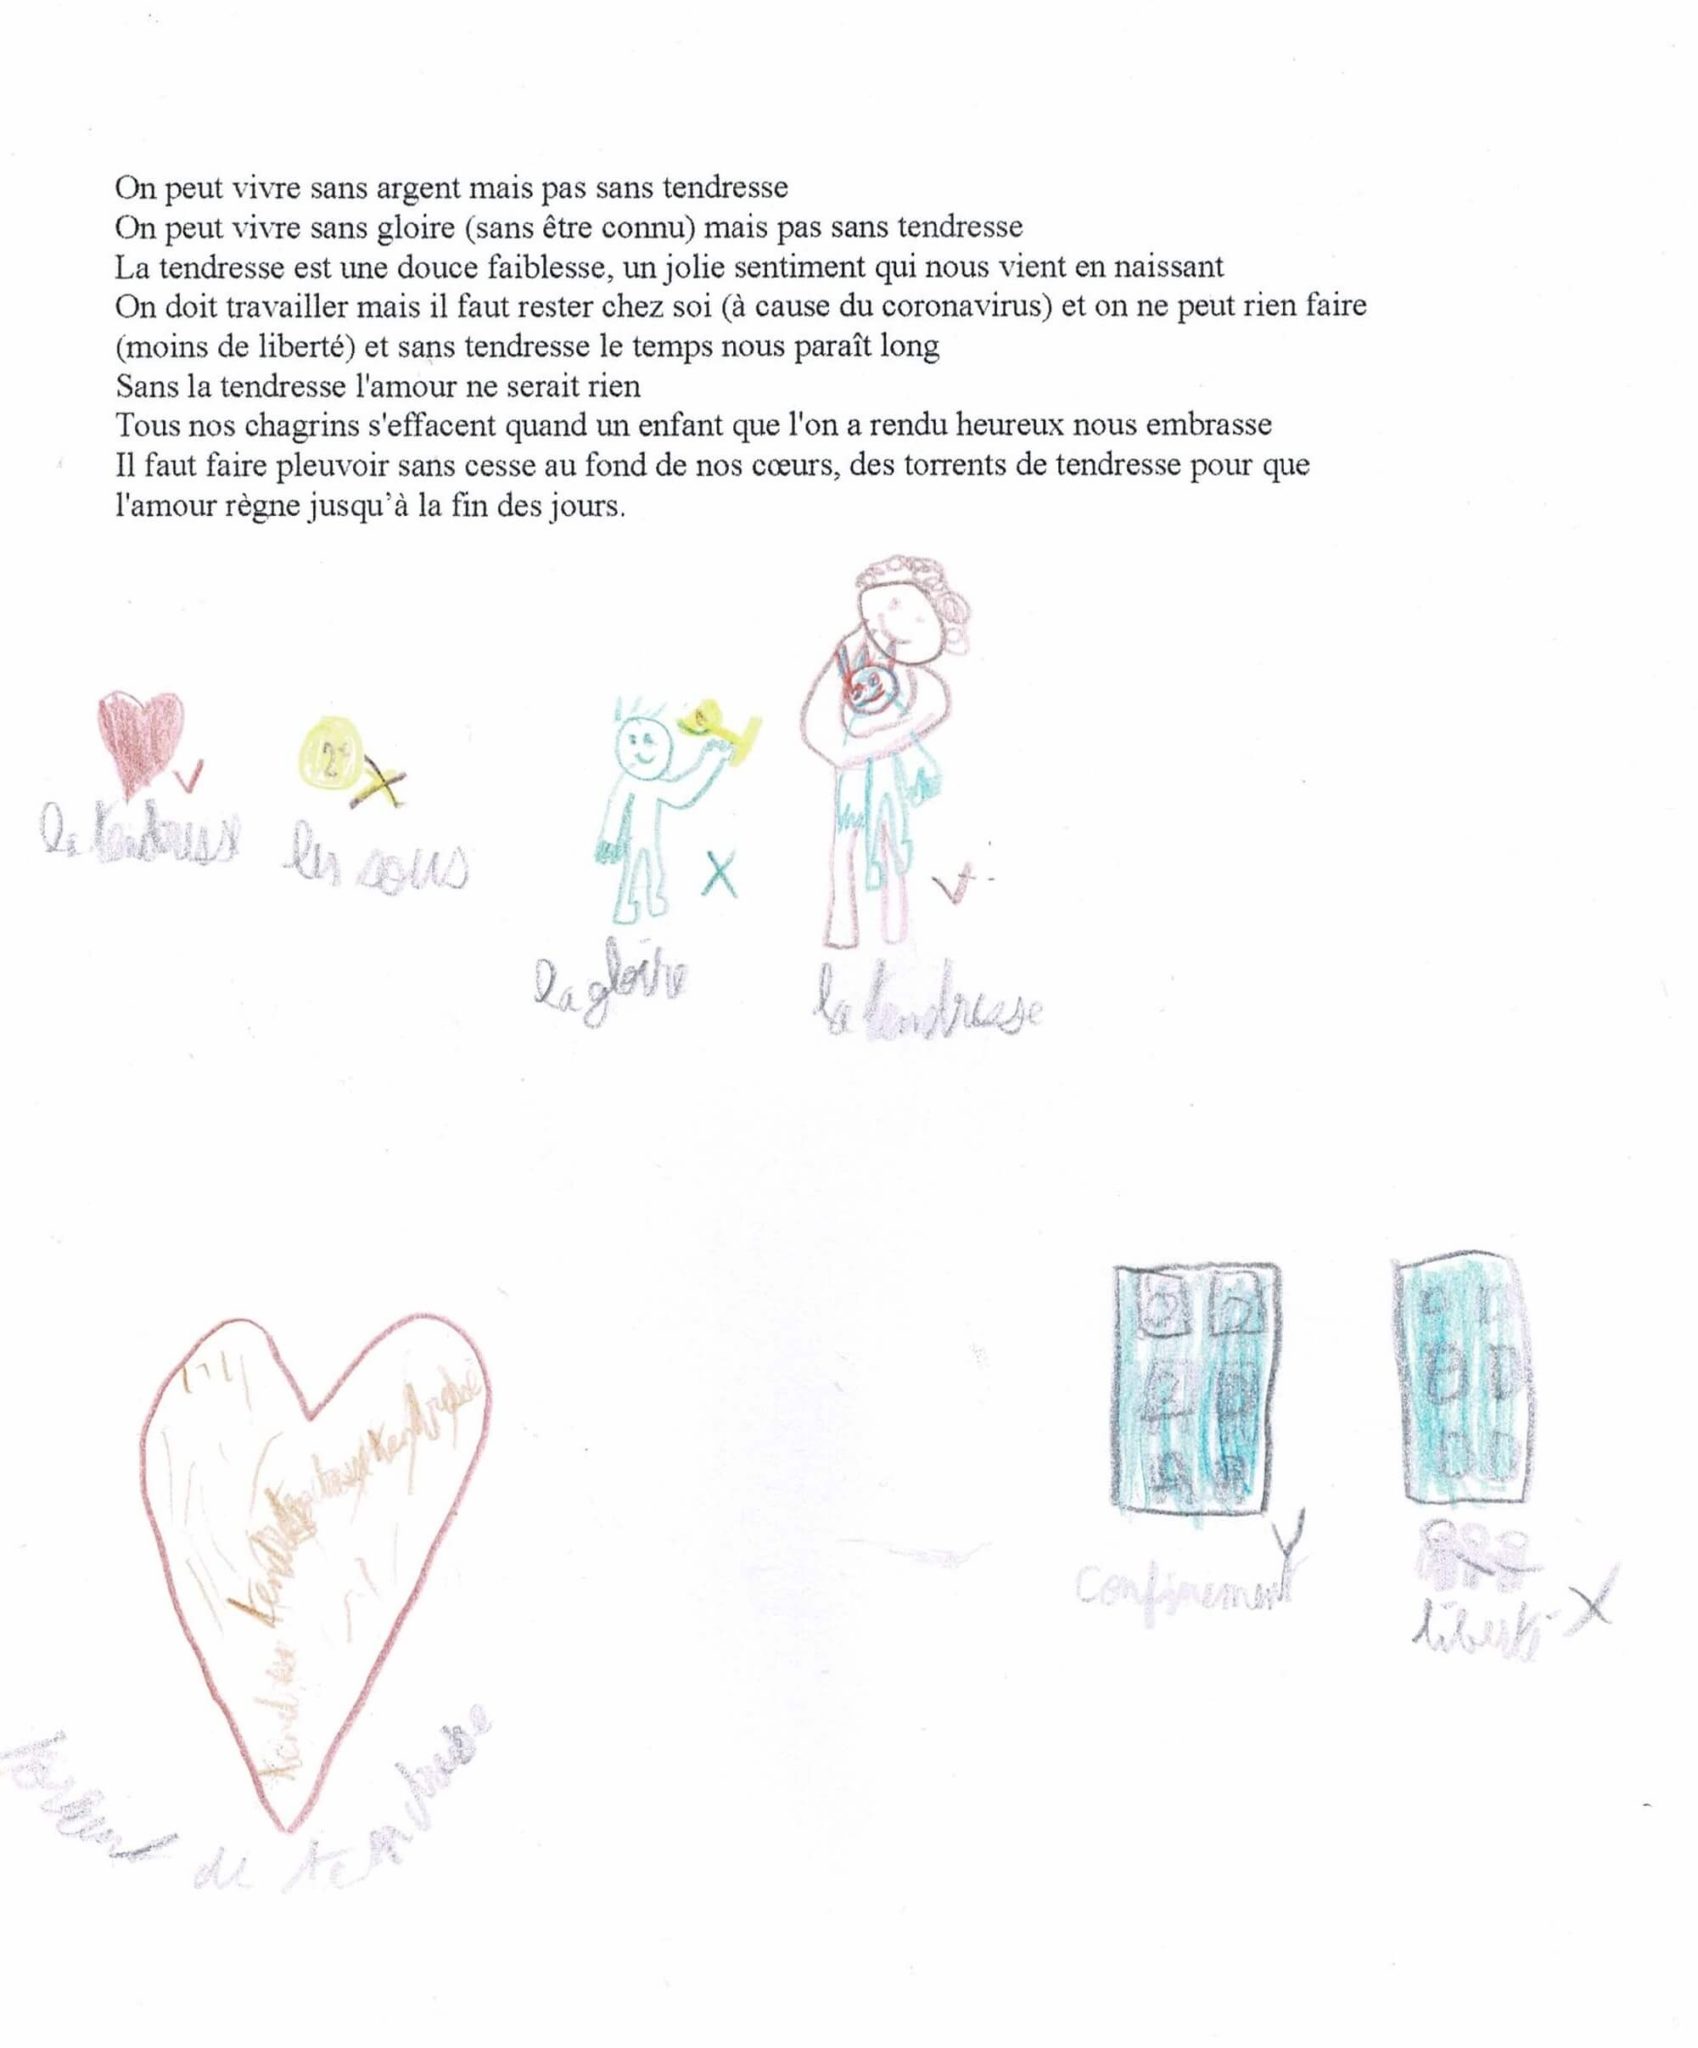 On peut vivre sans argent mais pas sans tendresse
On peut vivre sans gloire (sans être connu) mais pas sans tendresse
La tendresse est une douce faiblesse, un jolie sentiment qui nous vient en naissant
On doit travailler mais il faut rester chez soi (à cause du coronavirus) et on ne peut rien faire
(moins de liberté) et sans tendresse le temps nous paraît long
Sans la tendresse l'amour ne serait rien
Tous nos chagrins s'effacent quand un enfant que l'on a rendu heureux nous embrasse
Il faut faire pleuvoir sans cesse au fond de nos cœurs, des torrents de tendresse pour que
l'amour règne jusqu'à la fin des jours.
2€
la tendresse
les sous
la gloire
la tendresse
tendresse
confinement
liberté
torrent de tendresse